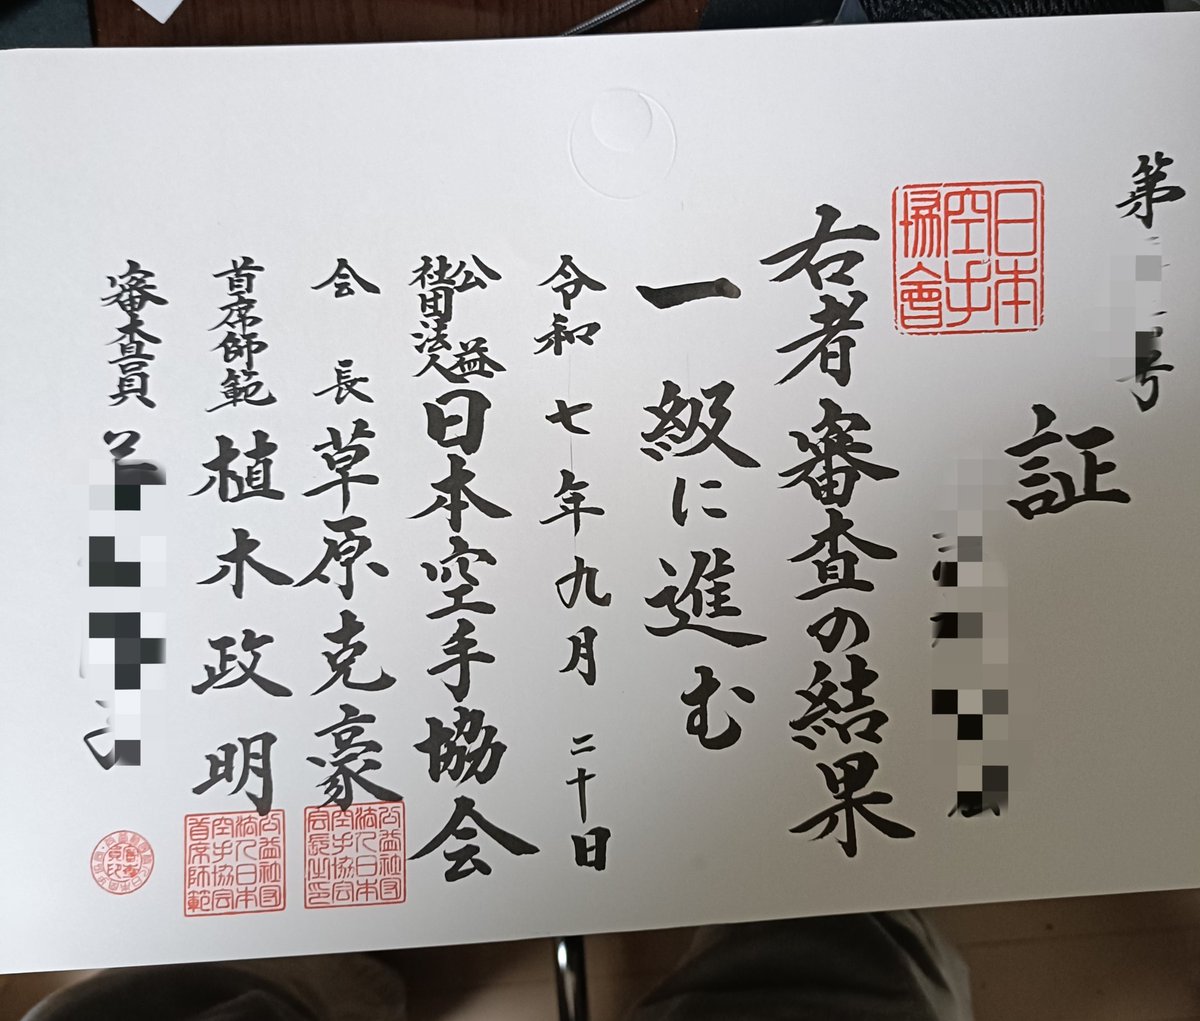 第 号
証
日本
空手
協會
右者審査の結果
一級に進む
令和七年九月二十日
公益
社団法人
日本空手協会
会長 草原克豪
公益社団
法人日本
空手協会
会長之印
首席師範 植木政明
公益社団
法人日本
空手協会
首席師範
審査員